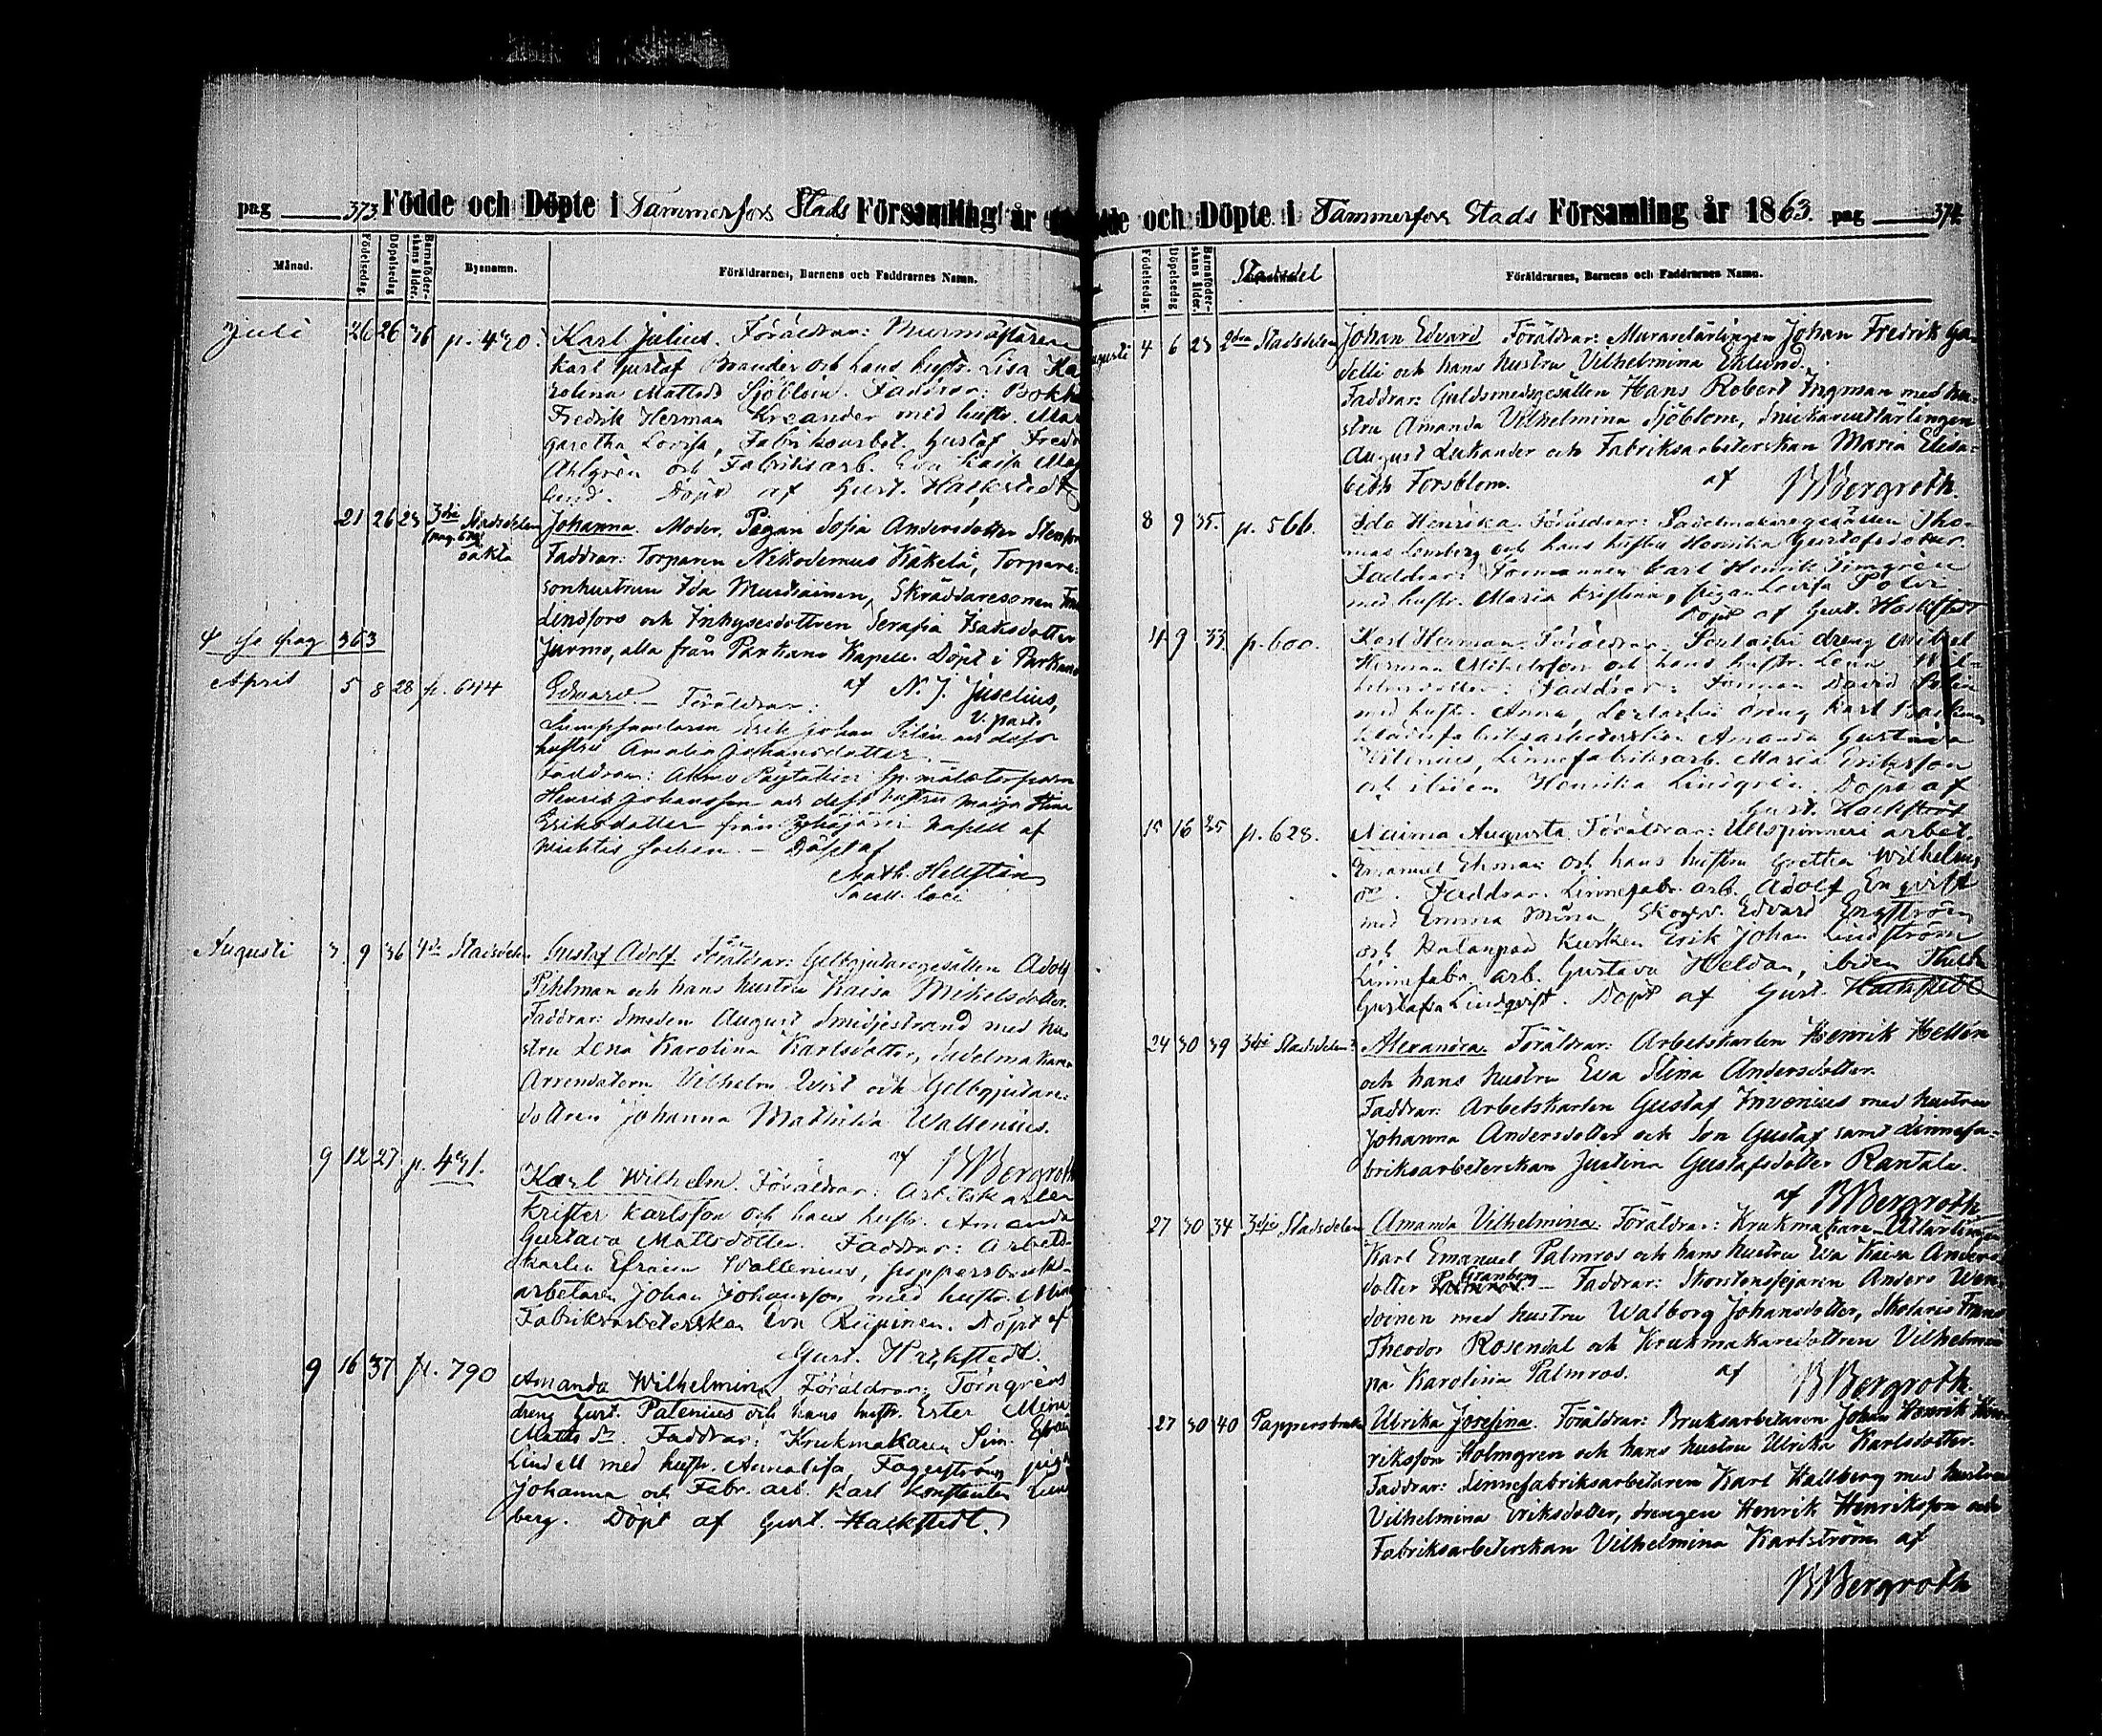 pag 373 Födde och Döpte i Tammerfors Stads Församling år
Månad. Födelsedag. Döpelsedag Barnaföderskans ålder. Bysnamn. Föräldrarnes, Barnens och Faddrarnes Namn.
Juli 26 26 36 p. 420. Karl Julius. Föräldrar: Murmästaren
Karl Gustaf Brander och hans hustr. Lisa Ka
rolina Mattsdr Sjöblom. Faddrar: Bokh
Fredrik Herman Kreander med hustr. Mar
garetha Lovisa, Fabriksarbet. Gustaf Fredr
Ahlgrén och Fabriksarb. Eva Kaisa
lund. Döpt af Gust. Hackstedt
21 26 23 3dje Stadsdelen Johanna. Moder, Pigan Sofia Andersdotter
oäkta Faddrar: Torparen Nikodemus Kakela, Torpare-
sonhustrun Ida Mustiainen, Skräddaresonen
Lindfors och Inhysesdottren Serafia Isaksdotter
Jurmo, alla från Parkano Kapell. Döpt i Parkano
af N. J. Juselius,
v. past.
Se pag 363
April 5 8 28 p. 644 Edward. – Föräldrar:
Lumpsamlaren Erik Johan och dess
hustru Amalia Johansdotter. –
Faddrar:
Henrik Johansson och dess hustru Maija Stina
Eriksdotter från Kapell af
socken. – Döpt af
Math. Hellstén
Sacell. loci
Augusti 3 9 36 4de Stadsdelen Gustaf Adolf. Föräldrar: Gelbgjutaregesällen Adolf
Pihlman och hans hustru Kaisa Mikelsdotter.
Faddrar: Smeden August Smidjestrand med hu
stru Lena Karolina Karlsdotter, Sadelmakare
Arrendatorn Vilhelm Qvist och Gelbgjutare-
dottren Johanna Mathilda Wallenius.
af BBergroth
9 12 27 p. 491. Karl Wilhelm. Föräldrar: Arbetskarlen
Krister Karlsson och hans hustr. Amanda
Gustava Mattsdotter. Faddrar: Arbets-
karlen Efraim Wallenius, pappersbruks-
arbetaren Johan Johansson med hustr. Mina
Fabriksarbeterskan Eva Riipinen. Döpt af
Gust. Hackstedt.
9 16 37 p. 790 Amanda Wilhelmina. Föräldrar: Törngrens
dreng Gust. Palenius och hans hustr. Ester Mina
Matts dr. Faddrar: Krukmakaren Sim. Efraim
Lindell med hustr. Annalisa Fagerström pigan
Johanna och Fabr. arb. Karl Konstantin Lind
berg. Döpt af Gust. Hackstedt.
och Döpte i Tammerfors Stads Församling år 1863. pag 374
Födelsedag. Döpelsedag Barnaföderskans ålder. Stadsdel Föräldrarnes, Barnens och Faddrarnes Namn.
Augusti 4 6 23 2dra Stadsdelen Johan Edvard. Föräldrar: Murarelärlingen Johan Fredrik Ga-
delli och hans hustru Vilhelmina Eklund.
Faddrar: Guldsmedsgesällen Hans Robert Ingman med hu-
stru Amanda Vilhelmina Sjöblom, Snickareutlärlingen
August Lukander och Fabriksarbeterskan Maria Elisa-
beth Forsblom. af BBergroth.
8 9 35. p. 566. Ida Henrika. Föräldrar: Sadelmakaregesällen Tho-
mas Lemberg och hans hustru Henrika Gustafsdotter.
Faddrar: Formannen Karl Henrik Timgrén
med hustr. Maria Kristina, pigan Lovisa
Döpt af Gust. Hackstedt
4 9 33 p. 600. Karl Herman. Föräldrar: dreng Mikel
Herman Mikelsson och hans hustr. Lena Wil-
helmsdotter. Faddrar: Forman David
med hustr. Anna, dreng Karl
Klädesfabriksarbeterskan Amanda Gustava
Linnefabriksarb. Maria Eriksson
och Henrika Lindgrén. Döpt af
Gust. Hackstedt
15 16 25 p. 628. Naima Augusta. Föräldrar: Ullspinneri arbet.
Emanuel Ekman och hans hustru Gretha Wilhelms
dr. Faddrar: Linnefabr. arb. Adolf Enqvist
med Emma Mina, Edvard Engström
och Hatanpää Kusken Erik Johan Lindström
Linnefabr. arb. Gustava Heldan, ibidem Thilda
Gustafva Lindqvist. Döpt af Gust. Hackstedt
24 30 39 3dje Stadsdelen Alexandra. Föräldrar: Arbetskarlen Henrik Hellén
och hans hustru Eva Stina Andersdotter.
Faddrar: Arbetskarlen Gustaf Invenius med hustru
Johanna Andersdotter och Son Gustaf samt Linnefa-
briksarbeterskan Justina Gustafsdotter Rantala.
af BBergroth
27 30 34 3dje Stadsdelen Amanda Vilhelmina. Föräldrar: Krukmakare Utlärlingen
Karl Emanuel Palmros och hans hustru Eva Kaisa Anders
dotter Granberg – Faddrar: Skorstensfejaren Anders Wen-
doinen med hustru Walborg Johansdotter, Skolaris Frans
Theodor Rosendal och Krukmakaredottren Vilhelmi
na Karolina Palmros. af BBergroth.
27 30 40 Pappersbruket Ulrika Josefina. Föräldrar: Bruksarbetaren Johan Henrik Hen-
riksson Holmgren och hans hustru Ulrika Karlsdotter.
Faddrar: Linnefabriksarbetaren Karl Hallberg med hustru
Vilhelmina Eriksdotter, drengen Henrik Henriksson och
Fabriksarbeterskan Vilhelmina Karlström af
BBergroth